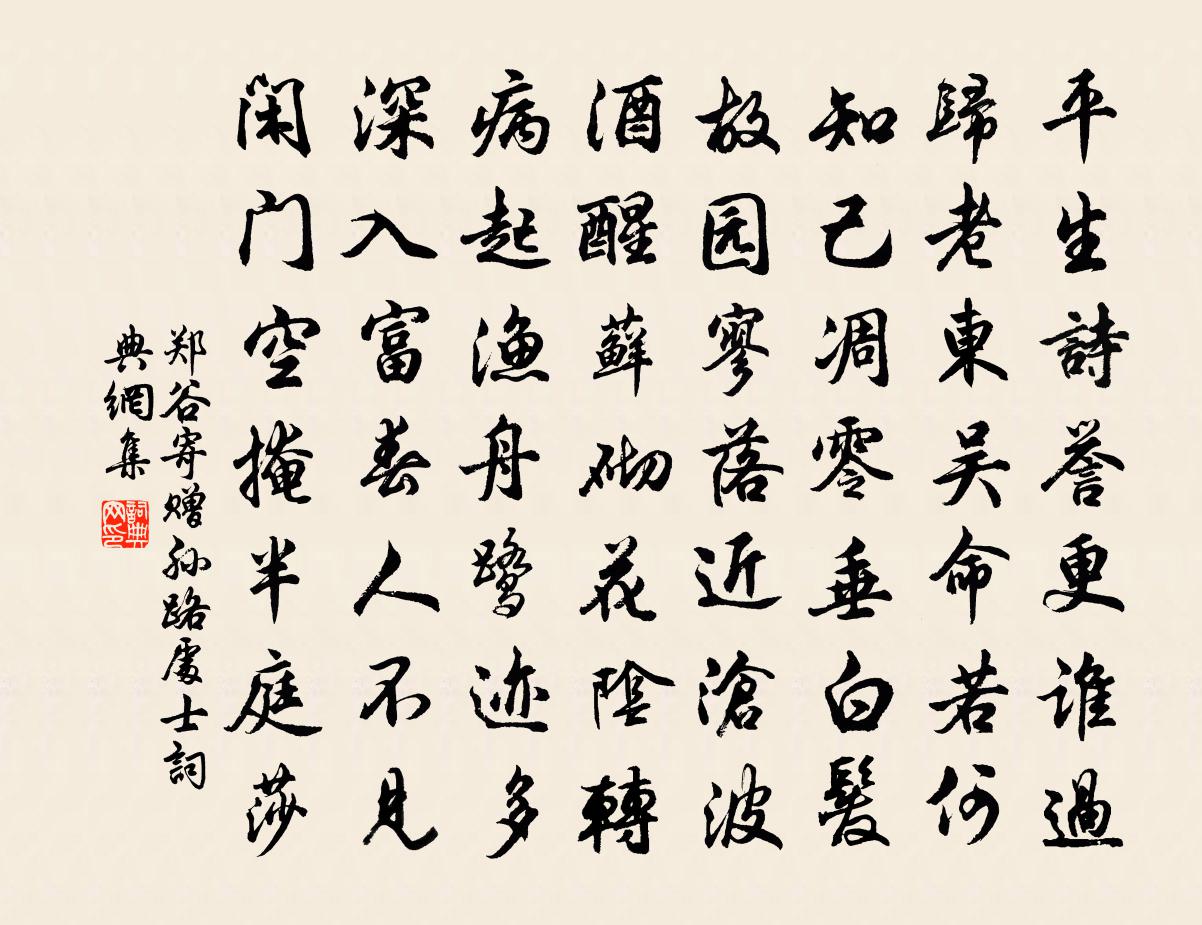 平生詩誉更谁過
歸老東吴命若何
知己凋零垂白髮
故园寥落近滄波
酒醒蘚砌花陰轉
病起渔舟鹭迹多
深入富春人不見
闲门空掩半庭莎
郑谷寄赠孙路處士詞
典網集
詞典网印